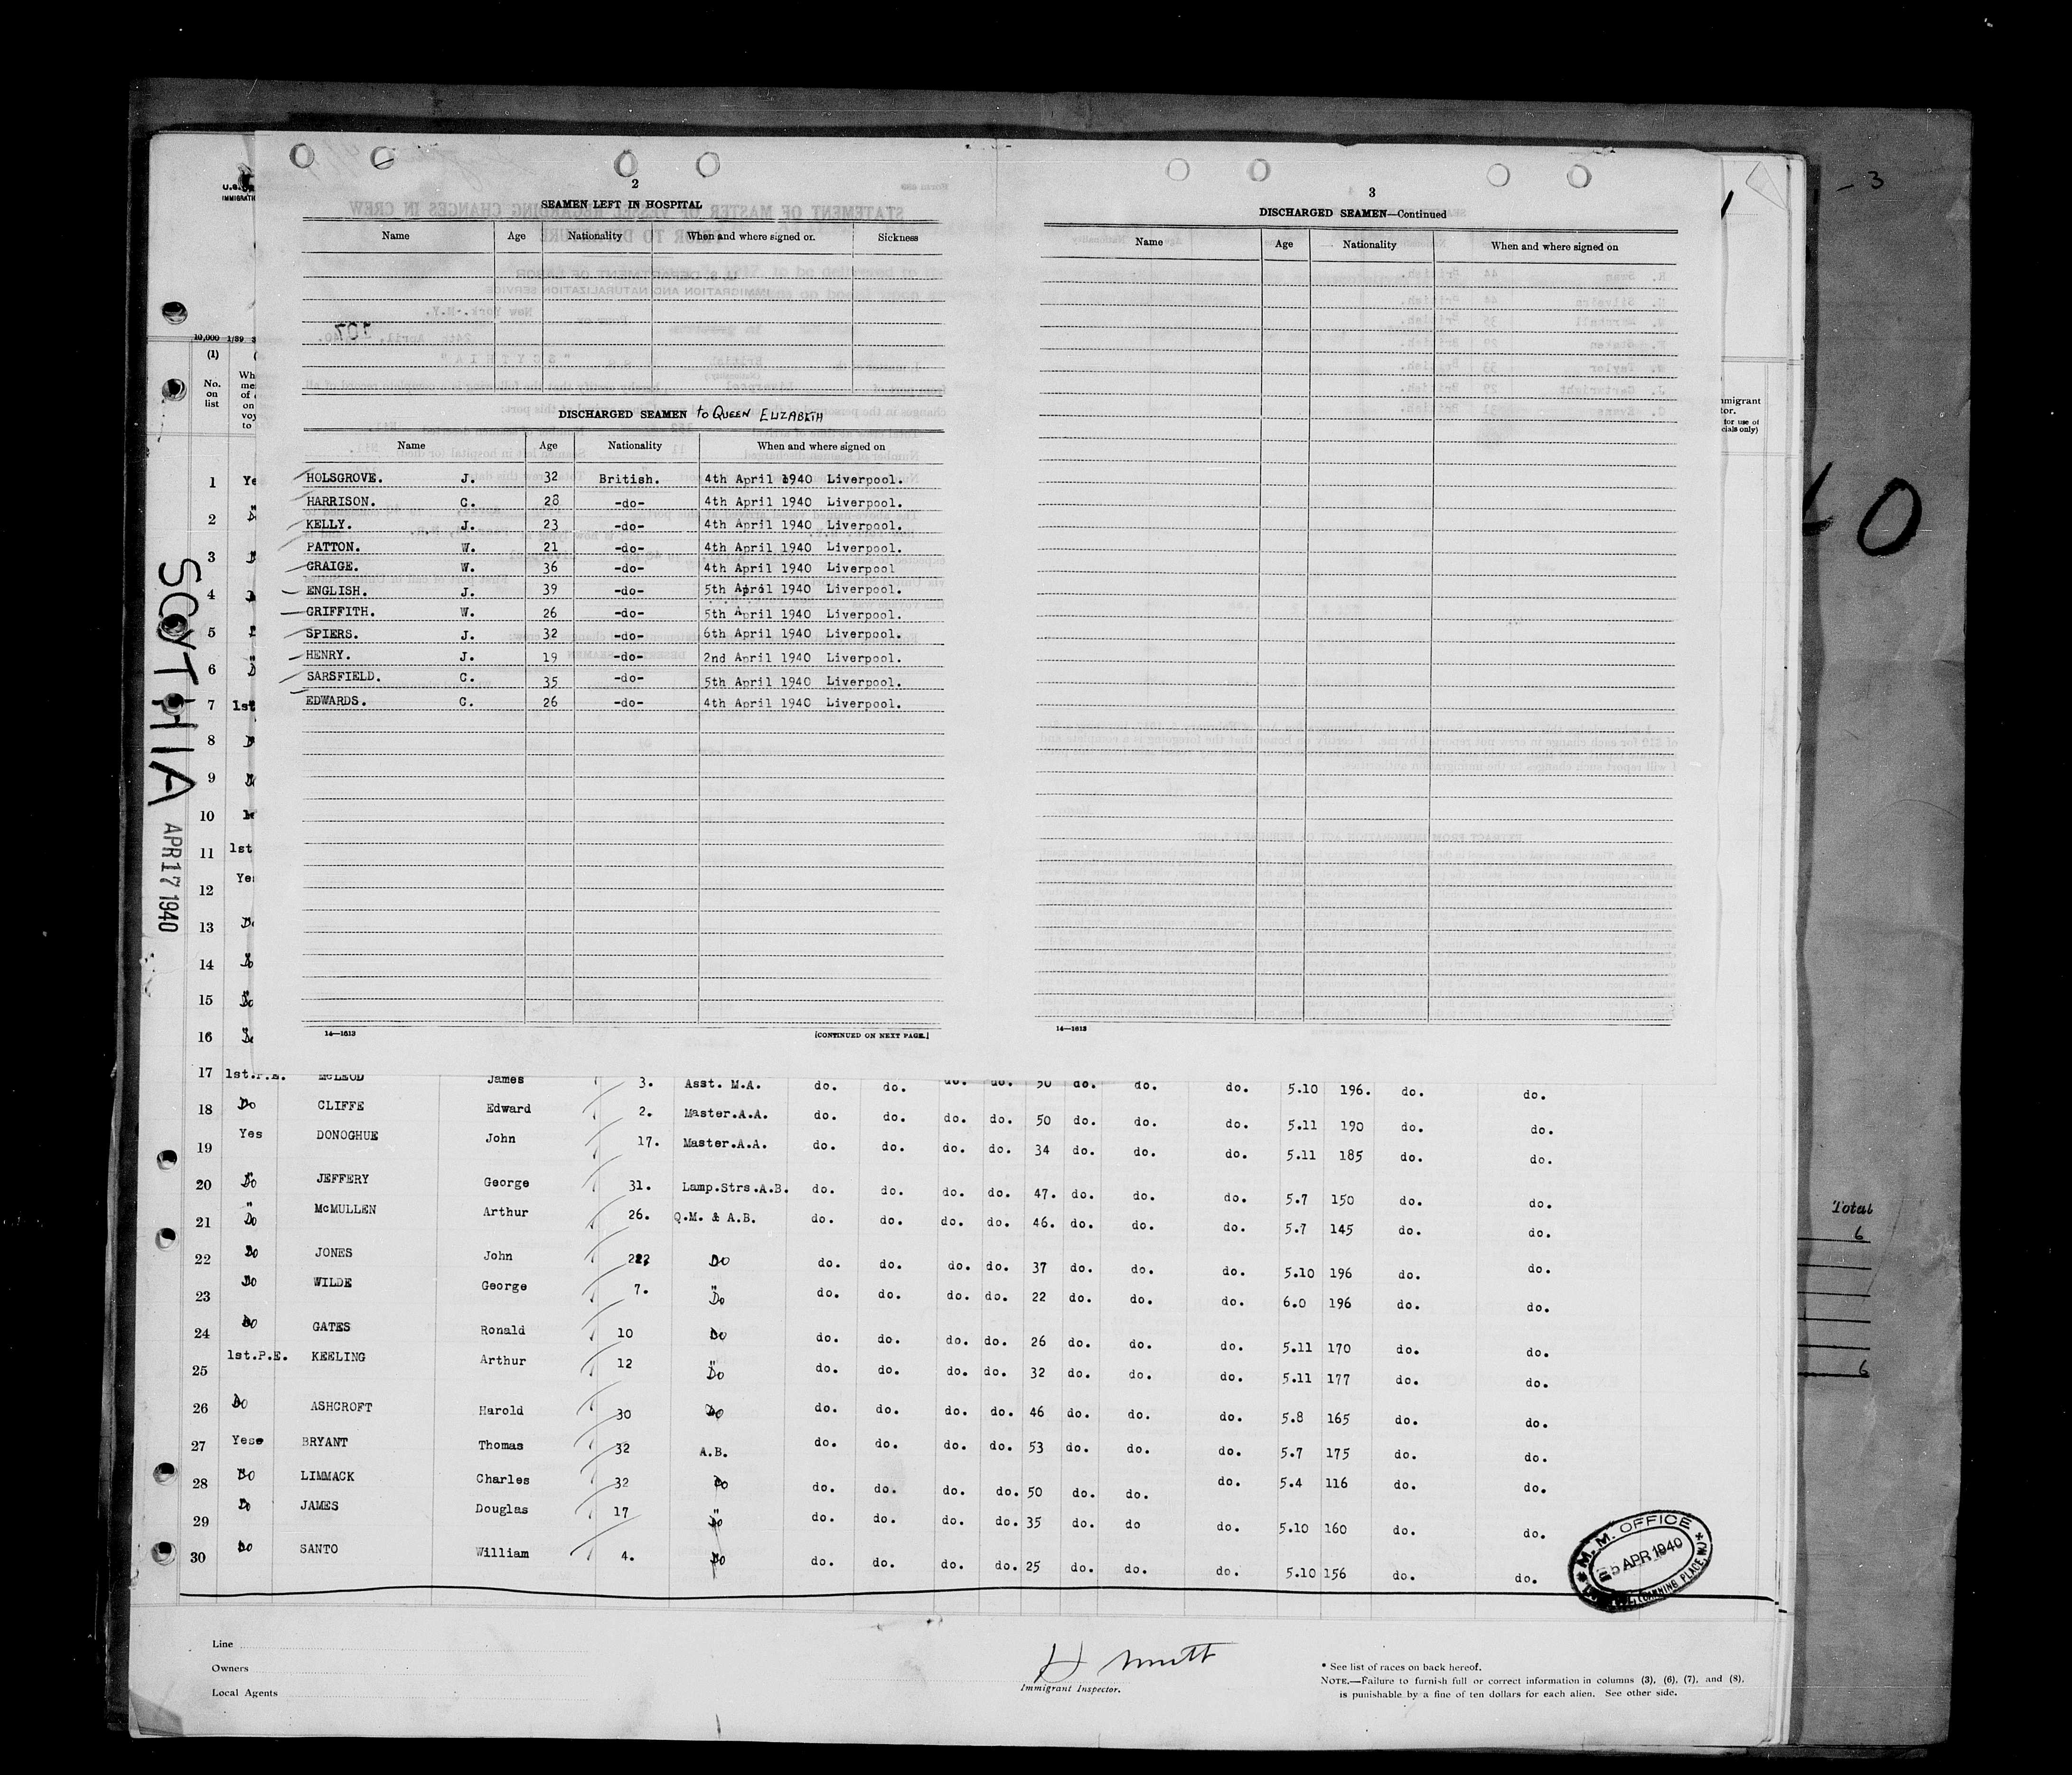 2
SEAMEN LEFT IN HOSPITAL
Name Age Nationality When and where signed or. Sickness
DISCHARGED SEAMEN to QUEEN ELIZABETH
Name Age Nationality When and where signed on
HOLSGROVE. J. 32 British. 4th April 1940 Liverpool.
HARRISON. G. 28 -do- 4th April 1940 Liverpool.
KELLY. J. 23 -do- 4th April 1940 Liverpool.
PATTON. W. 21 -do- 4th April 1940 Liverpool.
CRAIGE. W. 36 -do- 4th April 1940 Liverpool
ENGLISH. J. 39 -do- 5th April 1940 Liverpool.
GRIFFITH. W. 26 -do- 5th April 1940 Liverpool.
SPIERS. J. 32 -do- 6th April 1940 Liverpool.
HENRY. J. 19 -do- 2nd April 1940 Liverpool.
SARSFIELD. C. 35 -do- 5th April 1940 Liverpool.
EDWARDS. G. 26 -do- 4th April 1940 Liverpool.
14—1613 [CONTINUED ON NEXT PAGE.]
3
DISCHARGED SEAMEN—Continued
Name Age Nationality When and where signed on
14—1613
SCYTHIA APR 17 1940
10,000 1/39
(1)
No.
on
list
1
2
3
4
5
6
7 1st
8
9
10
11 1st
12 Yes
13
14
15
16
17 1st.P.E. McLEOD James 3. Asst. M.A. do. do. do. do. 50 do. do. do. 5.10 196. do. do.
18 Do CLIFFE Edward 2. Master.A.A. do. do. do. do. 50 do. do. do. 5.11 190 do. do.
19 Yes DONOGHUE John 17. Master.A.A. do. do. do. do. 34 do. do. do. 5.11 185 do. do.
20 Do JEFFERY George 31. Lamp.Strs.A.B. do. do. do. do. 47. do. do. do. 5.7 150 do. do.
21 Do McMULLEN Arthur 26. Q.M. & A.B. do. do. do. do. 46. do. do. do. 5.7 145 do. do.
22 Do JONES John Do do. do. do. do. 37 do. do. do. 5.10 196 do. do.
23 Do WILDE George 7. Do do. do. do. do. 22 do. do. do. 6.0 196 do. do.
24 Do GATES Ronald 10 Do do. do. do. do. 26 do. do. do. 5.11 170 do. do.
25 1st.P.E. KEELING Arthur 12 Do do. do. do. do. 32 do. do. do. 5.11 177 do. do.
26 Do ASHCROFT Harold 30 Do do. do. do. do. 46 do. do. do. 5.8 165 do. do.
27 Yes BRYANT Thomas 32 A.B. do. do. do. do. 53 do. do. do. 5.7 175 do. do.
28 Do LIMMACK Charles 32 Do do. do. do. do. 50 do. do. do. 5.4 116 do. do.
29 Do JAMES Douglas 17 Do do. do. do. do. 35 do. do do. 5.10 160 do. do.
30 Do SANTO William 4. Do do. do. do. do. 25 do. do. do. 5.10 156 do. do.
M. M. OFFICE
APR 1940
Line
Owners
Local Agents
Immigrant Inspector.
* See list of races on back hereof.
NOTE.—Failure to furnish full or correct information in columns (3), (6), (7), and (8),
is punishable by a fine of ten dollars for each alien. See other side.
Total
6
6